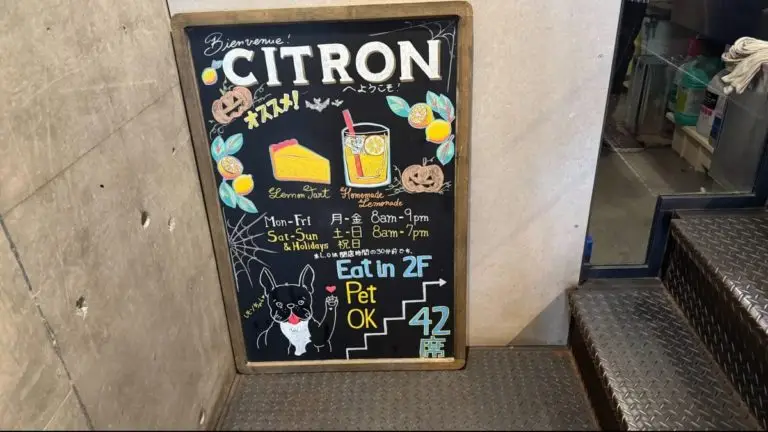 Bienvenue!
CITRON
へようこそ!
オススメ!
Lemon Tart
Homemade
Lemonade
Mon-Fri 月-金 8am-9pm
Sat-Sun 土-日 8am-7pm
& Holidays 祝日
※L.Oは閉店時間の30分前です。
Eat in 2F
Pet
OK
42
席